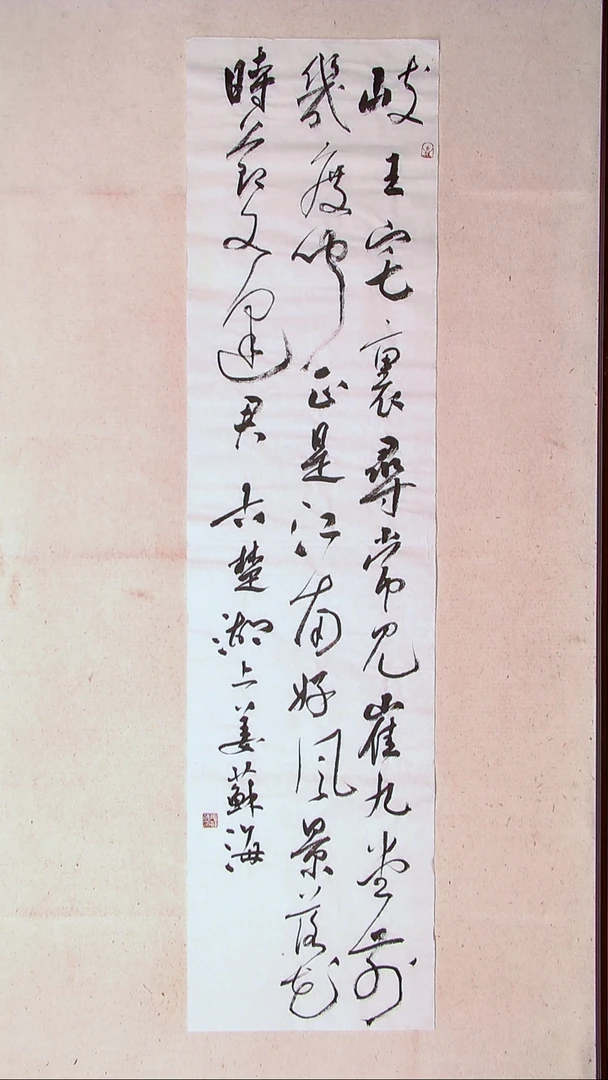 岐王宅裏尋常見崔九堂前
幾度聞正是江南好風景落花
時節又逢君 古楚湖上姜蘇海